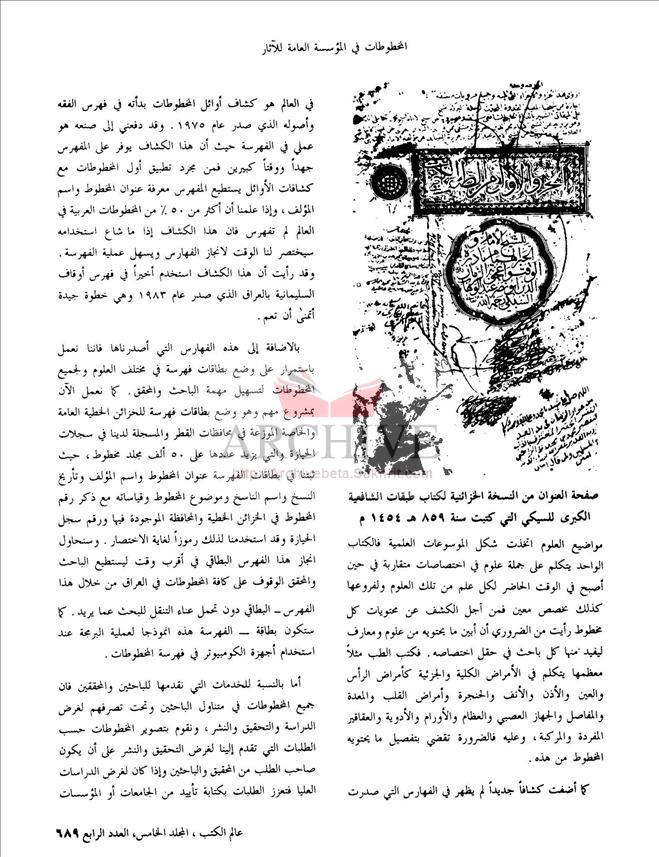 المخطوطات في المؤسسة العامة للآثار
صفحة العنوان من النسخة الخزائنية لكتاب طبقات الشافعية
الكبرى للسبكي التي كتبت سنة ٨٥٩ هـ ١٤٥٤ م
مواضيع العلوم اتخذت شكل الموسوعات العلمية فالكتاب
الواحد يتكلم على جملة علوم في اختصاصات متقاربة في حين
أصبح في الوقت الحاضر لكل علم من تلك العلوم ولفروعها
كذلك بخصص معين فمن أجل الكشف عن محتويات كل
مخطوط رأيت من الضروري أن أبين ما يحتويه من علوم ومعارف
ليفيد منها كل باحث في حقل اختصاصه . فكتب الطب مثلاً
معظمها يتكلم في الأمراض الكلية والجزئية كأمراض الرأس
والعين والأذن والأنف والحنجرة وأمراض القلب والمعدة
والمفاصل والجهاز العصبي والعظام والأورام والأدوية والعقاقير
المفردة والمركبة ، وعليه فالضرورة تقضي بتفصيل ما يحتويه
المخطوط من هذه .
كما أضفت كشافاً جديداً لم يظهر في الفهارس التي صدرت
في العالم هو كشاف أوائل المخطوطات بدأته في فهرس الفقه
وأصوله الذي صدر عام ١٩٧٥ . وقد دفعني إلى صنعه هو
عملي في الفهرسة حيث أن هذا الكشاف يوفر على المفهرس
جهداً ووقتاً كبيرين فمن مجرد تطبيق أول المخطوطات مع
كشافات الأوائل يستطيع المفهرس معرفة عنوان المخطوط واسم
المؤلف ، وإذا علمنا أن أكثر من ٥٠ ٪ من المخطوطات العربية في
العالم لم تفهرس فان هذا الكشاف إذا ما شاع استخدامه
سيختصر لنا الوقت لانجاز الفهارس ويسهل عملية الفهرسة .
وقد رأيت أن هذا الكشاف استخدم أخيراً في فهرس أوقاف
السليمانية بالعراق الذي صدر عام ١٩٨٣ وهي خطوة جيدة
أتمنى أن تعم .
بالاضافة إلى هذه الفهارس التي أصدرناها فاننا نعمل
باستمرار على وضع بطاقات فهرسة في مختلف العلوم ولجميع
المخطوطات لتسهيل مهمة الباحث والمحقق . كما نعمل الآن
بمشروع مهم وهو وضع بطاقات فهرسة للخزائن الخطية العامة
والخاصة الموزعة في محافظات القطر والمسجلة لدينا في سجلات
الحيازة والتي يزيد عددها على ٥٠ ألف مجلد مخطوط ، حيث
ثبتنا في بطاقات الفهرسة عنوان المخطوط واسم المؤلف وتأريخ
النسخ واسم الناسخ وموضوع المخطوط وقياساته مع ذكر رقم
المخطوط في الخزائن الخطية والمحافظة الموجودة فيها ورقم سجل
الحيازة وقد استخدمنا لذلك رموزاً لغاية الاختصار . وسنحاول
انجاز هذا الفهرس البطاقي في أقرب وقت ليستطيع الباحث
والمحقق الوقوف على كافة المخطوطات في العراق من خلال هذا
الفهرس ــ البطاقي دون تحمل عناء التنقل للبحث عما يريد . كما
ستكون بطاقة ــ الفهرسة هذه انموذجا لعملية البرمجة عند
استخدام أجهزة الكومبيوتر في فهرسة المخطوطات .
أما بالنسبة للخدمات التي نقدمها للباحثين والمحققين فان
جميع المخطوطات في متناول الباحثين وتحت تصرفهم لغرض
الدراسة والتحقيق والنشر ، ونقوم بتصوير المخطوطات حسب
الطلبات التي تقدم إلينا لغرض التحقيق والنشر على أن يكون
صاحب الطلب من المحققين والباحثين وإذا كان لغرض الدراسات
العليا فتعزز الطلبات بكتابة تأييد من الجامعات أو المؤسسات
ARCHIVE
http://Archivebeta.Sakhrit.com
عالم الكتب ، المجلد الخامس، العدد الرابع ٦٨٩